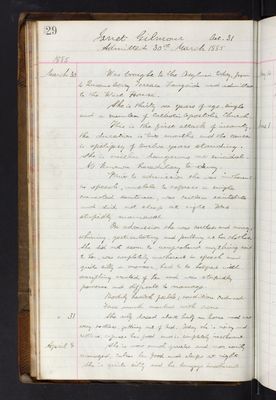 29
Janet Gilmour Aet. 31
Admitted 30th March 1885
1885
March 30 Was brought to the Asylum today, from
Terrace Langside and admitted
to the West House.
She is thirty one years of age, single
and a member of Catholic Apostolic Church.
This is the first attack of insanity,
the duration is two months and the cause
is epilepsy of twelve years standing.
She is neither dangerous nor suicidal.
No Insane heredity to
Prior to admission she was incoherent
in speech, unable to answer a single
connected sentence, was restless
and did not sleep at night. Was
stupidly maniacal.
On admission she was restless and
gesticulating and pulling at her clothes,
she did not seem to comprehend anything said
to her, was completely incoherent in speech and
quite silly in manner, had to be helped with
everything of her and was stupidly
perverse and difficult to manage.
Bodily health feeble, condition reduced
" 31 She only slept about two hours and was
very restless, getting out of bed. Today she is noisy and
restless, refuses her food and is completely incoherent.
April 3 She is now much quieter and more easily
managed, takes her food and sleeps at night.
She is quite silly and her language incoherent.